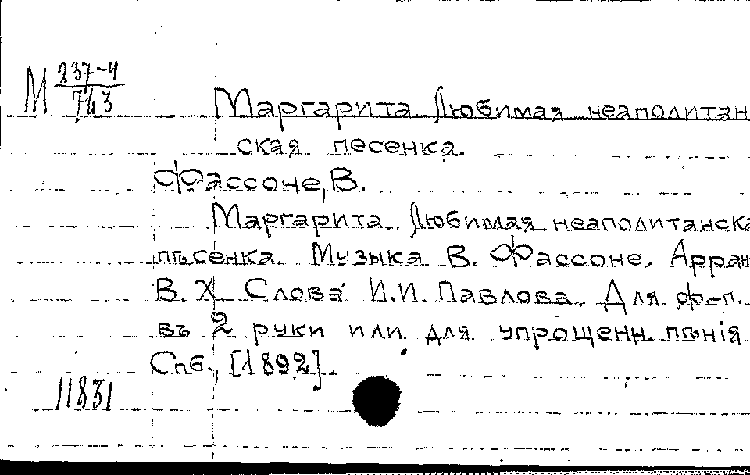 М 237-4
743
Маргарита. Любимая неаполитан
ская песенка.
Фассоне, В.
Маргарита. Любимая неаполитанска
пѣсенка. Музыка В. Фассоне. Арран
В. Х. Слова И.И. Павлова. Для ф-п.
въ 2 руки или для упрощенн. пѣнія
Спб., [1892].
11831